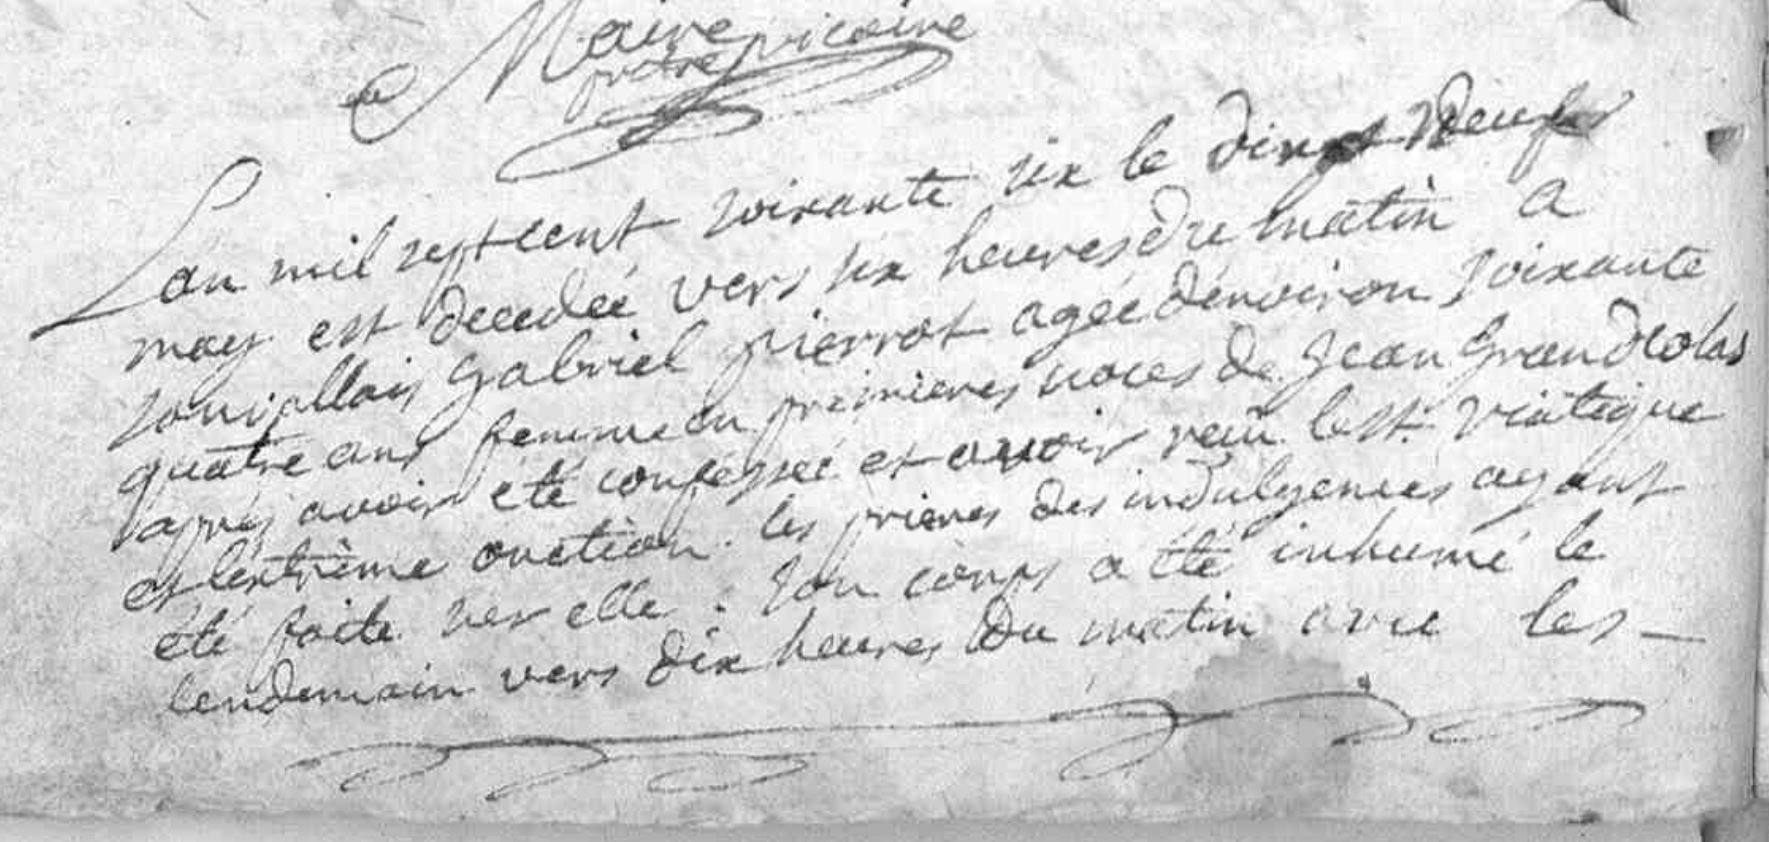 Maire vicaire
prêtre
Lan mil sept cent soixante six le dix neuf
may est decedée vers six heures du matin a
Gabriel pierrot agée denviron soixante
quatre ans femme en premieres noces de Jean Grandcolas
apres avoir été confessée et avoir reçû le st. viatique
et lextrême onction. les prieres des indulgences ayant
été faite sur elle. Son corps a été inhumé le
lendemain vers dix heures du matin avec les